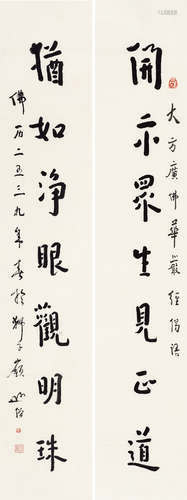 開示眾生見正道
大方廣佛華嚴經偈語
猶如淨眼觀明珠
佛曆二五三九年春於獅子巖